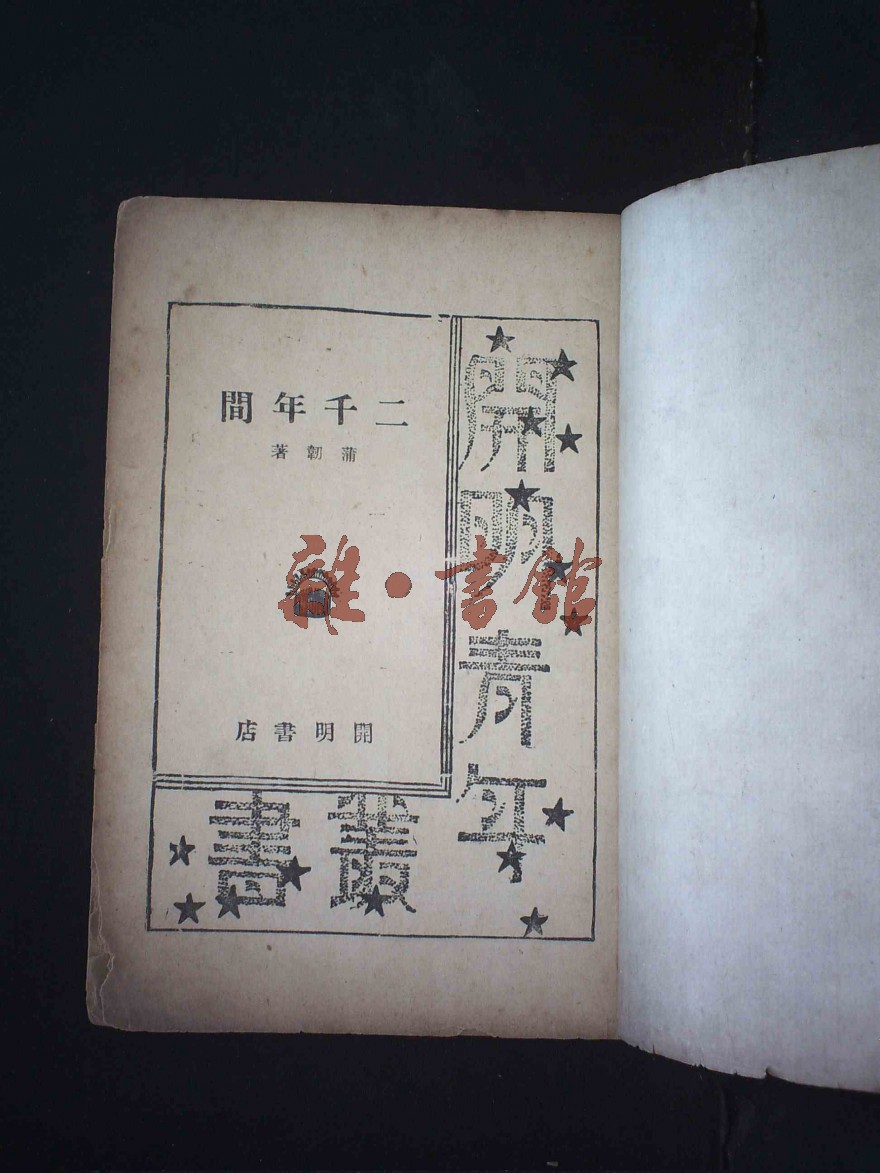 二千年間
蒲韌著
開明書店
開明青年
叢書
雜·書館